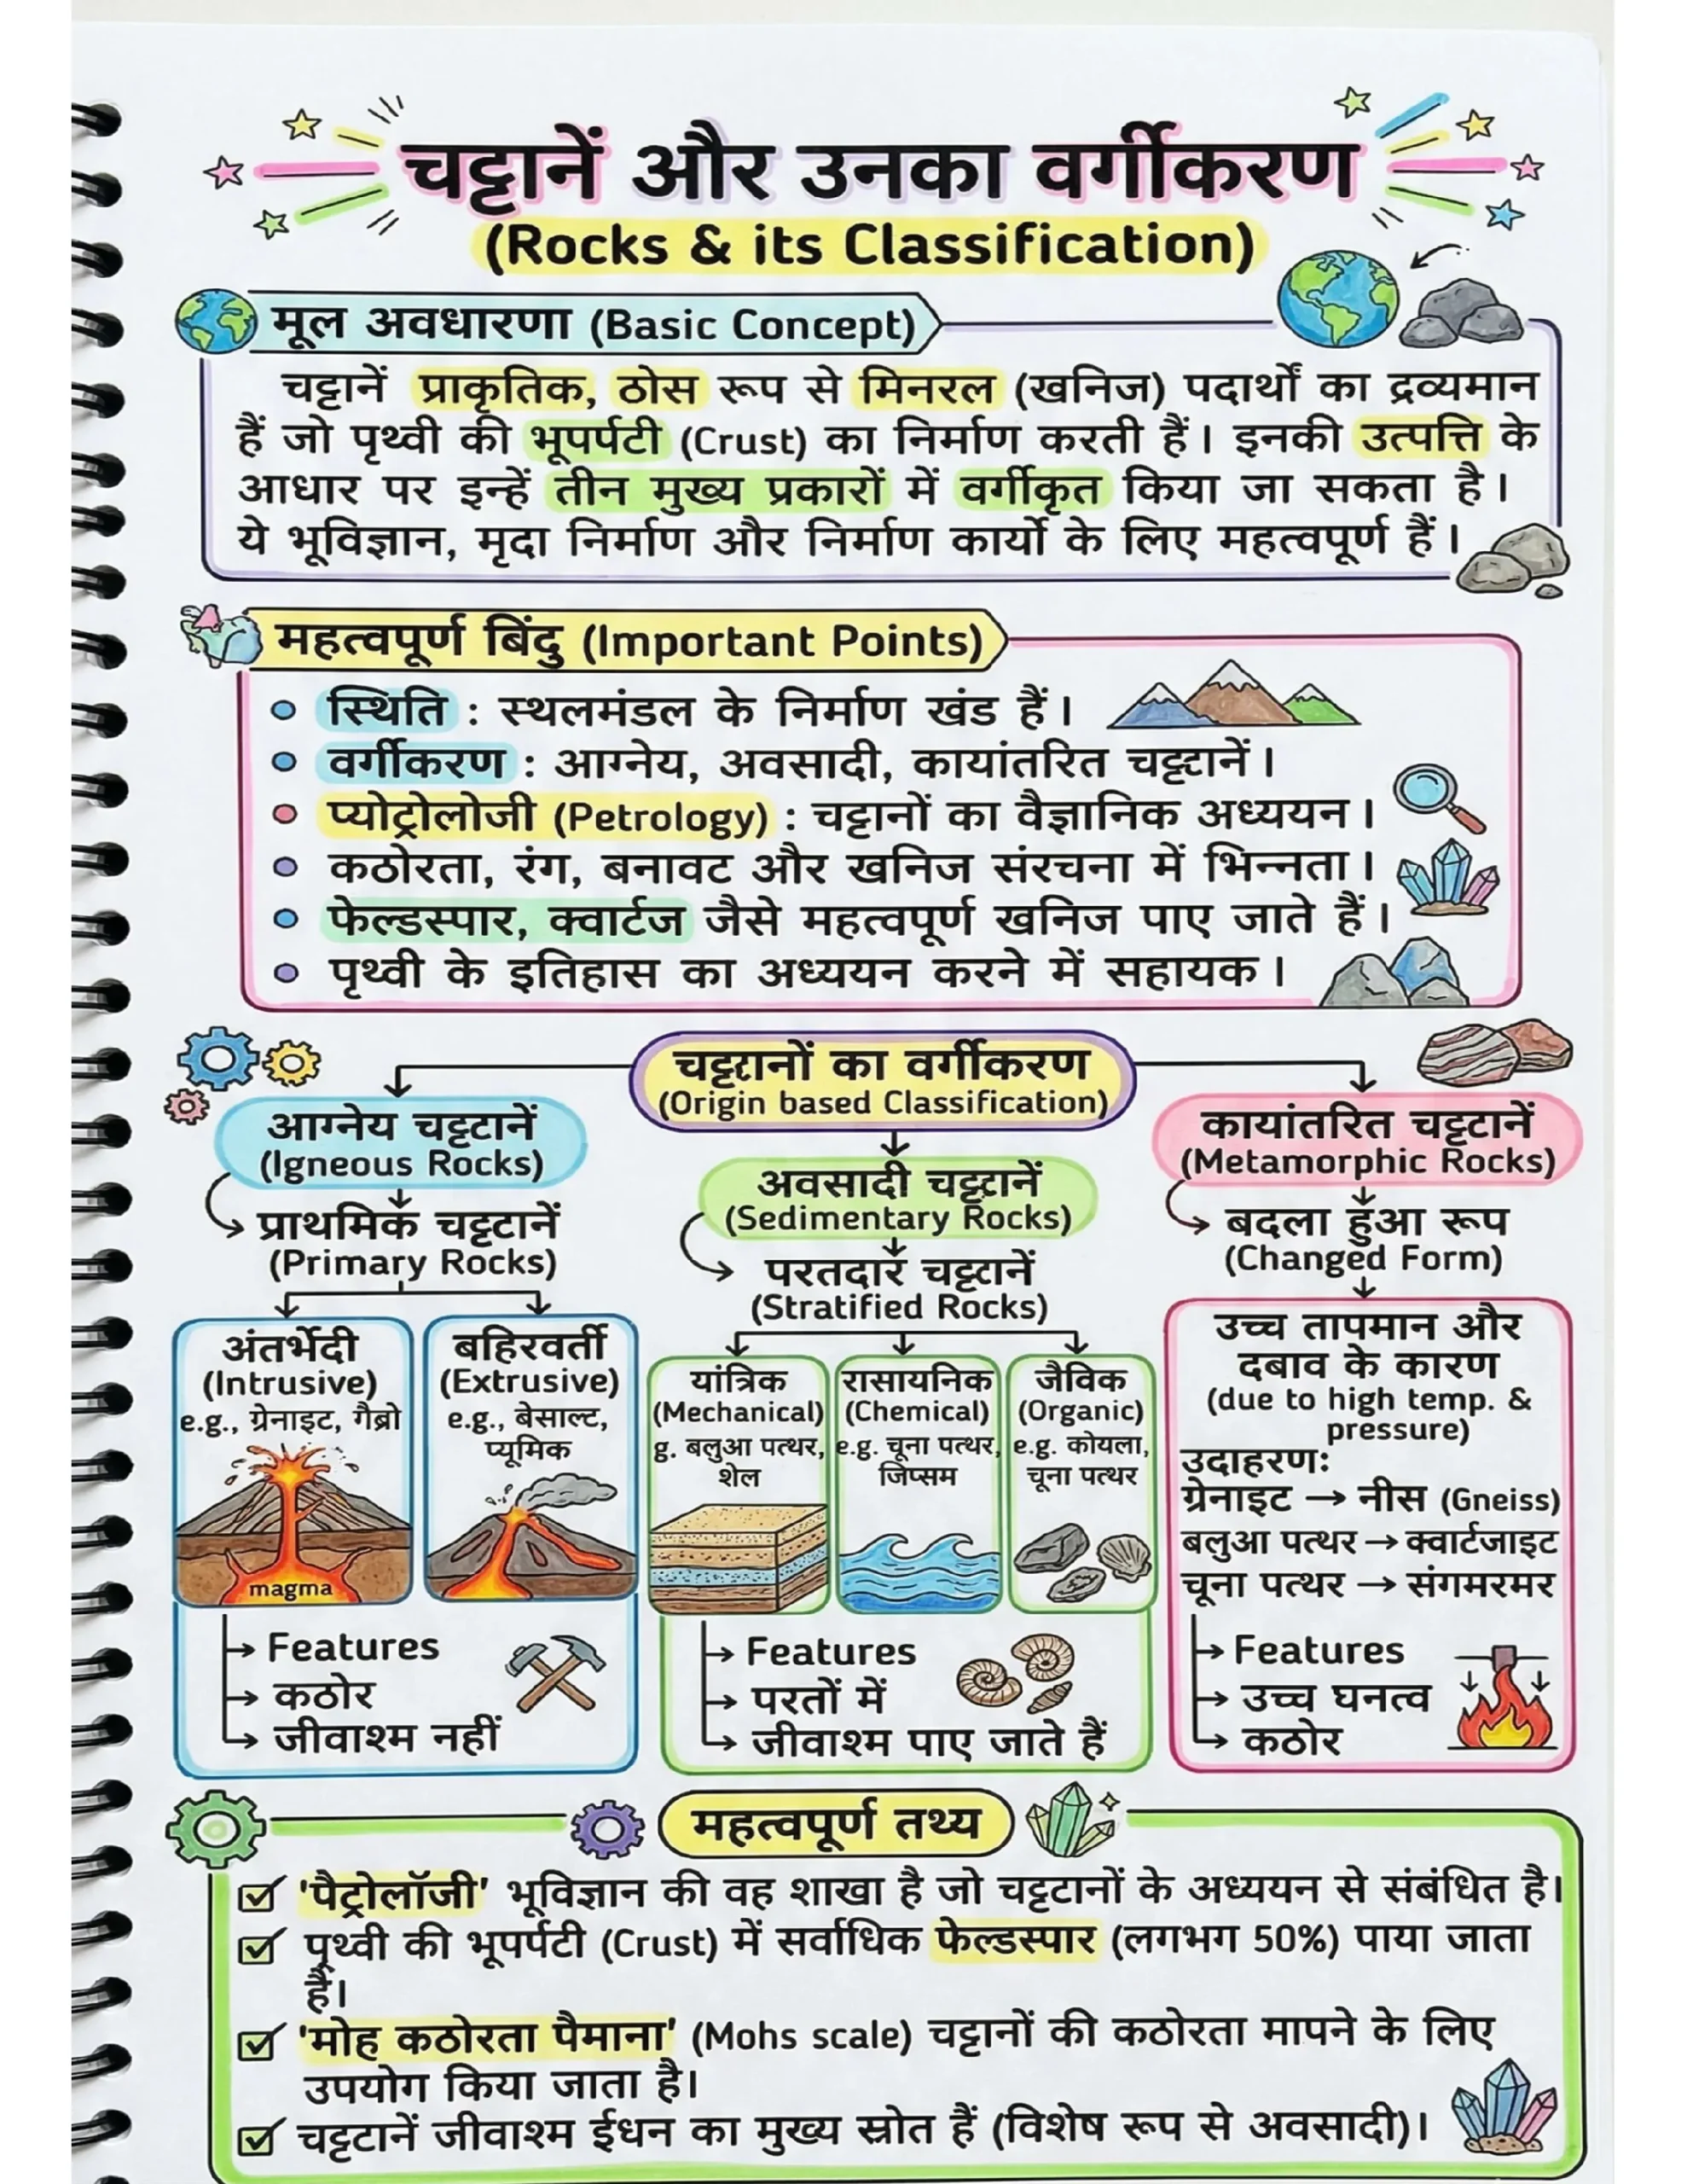 चट्टानें और उनका वर्गीकरण
(Rocks & its Classification)
मूल अवधारणा (Basic Concept)
चट्टानें प्राकृतिक, ठोस रूप से मिनरल (खनिज) पदार्थों का द्रव्यमान
हैं जो पृथ्वी की भूपर्पटी (Crust) का निर्माण करती हैं। इनकी उत्पत्ति के
आधार पर इन्हें तीन मुख्य प्रकारों में वर्गीकृत किया जा सकता है।
ये भूविज्ञान, मृदा निर्माण और निर्माण कार्यो के लिए महत्वपूर्ण हैं।
महत्वपूर्ण बिंदु (Important Points)
स्थिति : स्थलमंडल के निर्माण खंड हैं।
वर्गीकरण : आग्नेय, अवसादी, कायांतरित चट्टानें।
प्योट्रोलोजी (Petrology) : चट्टानों का वैज्ञानिक अध्ययन।
कठोरता, रंग, बनावट और खनिज संरचना में भिन्नता।
फेल्डस्पार, क्वार्टज जैसे महत्वपूर्ण खनिज पाए जाते हैं।
पृथ्वी के इतिहास का अध्ययन करने में सहायक।
चट्टानों का वर्गीकरण
(Origin based Classification)
आग्नेय चट्टानें
(Igneous Rocks)
प्राथमिक चट्टानें
(Primary Rocks)
अंतर्भेदी
(Intrusive)
e.g., ग्रेनाइट, गैब्रो
magma
बहिरवर्ती
(Extrusive)
e.g., बेसाल्ट,
प्यूमिक
Features
कठोर
जीवाश्म नहीं
अवसादी चट्टानें
(Sedimentary Rocks)
परतदार चट्टानें
(Stratified Rocks)
यांत्रिक
(Mechanical)
g. बलुआ पत्थर,
शेल
रासायनिक
(Chemical)
e.g. चूना पत्थर,
जिप्सम
जैविक
(Organic)
e.g. कोयला,
चूना पत्थर
Features
परतों में
जीवाश्म पाए जाते हैं
कायांतरित चट्टानें
(Metamorphic Rocks)
बदला हुआ रूप
(Changed Form)
उच्च तापमान और
दबाव के कारण
(due to high temp. &
pressure)
उदाहरण:
ग्रेनाइट → नीस (Gneiss)
बलुआ पत्थर → क्वार्टजाइट
चूना पत्थर → संगमरमर
Features
उच्च घनत्व
कठोर
महत्वपूर्ण तथ्य
'पैट्रोलॉजी' भूविज्ञान की वह शाखा है जो चट्टानों के अध्ययन से संबंधित है।
पृथ्वी की भूपर्पटी (Crust) में सर्वाधिक फेल्डस्पार (लगभग 50%) पाया जाता
है।
'मोह कठोरता पैमाना' (Mohs scale) चट्टानों की कठोरता मापने के लिए
उपयोग किया जाता है।
चट्टानें जीवाश्म ईधन का मुख्य स्रोत हैं (विशेष रूप से अवसादी)।